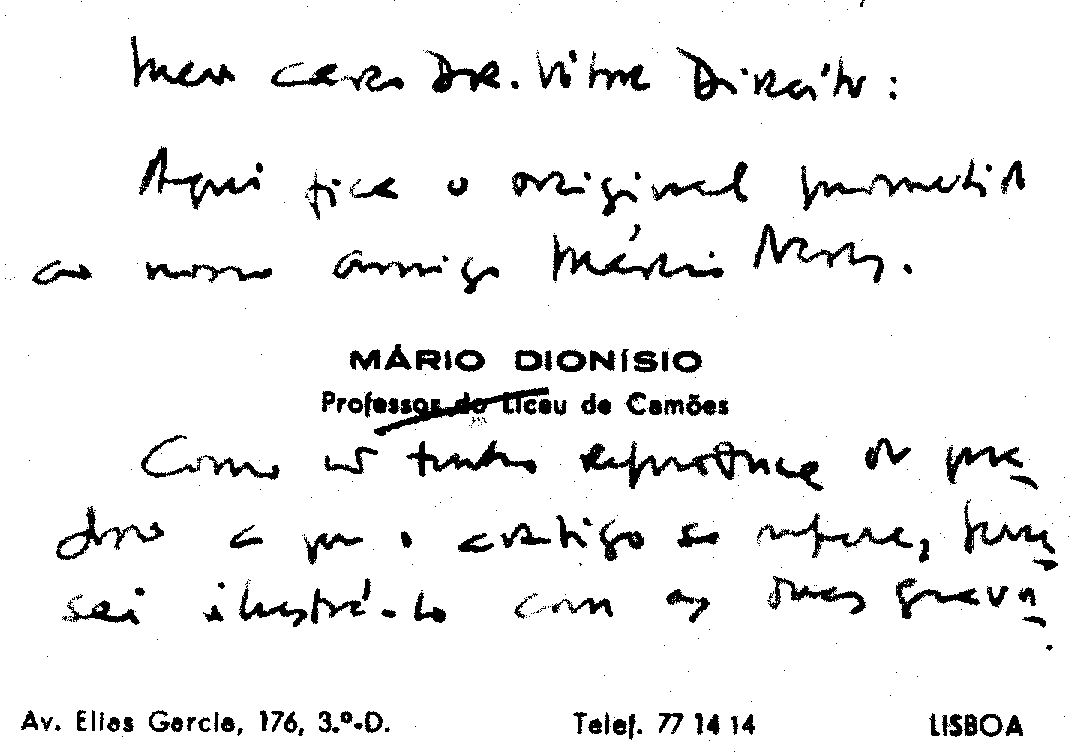 Meu caro Dr. Vítor Direito:
Aqui fica o original prometido
ao nosso amigo Mário Neves.
MÁRIO DIONÍSIO
Professor do Liceu de Camões
Como não tenho reproduções dos qua-
dros a que o artigo se refere, pen-
sei ilustrá-lo com as duas gravu-
Av. Elias Garcia, 176, 3.º-D. Telef. 77 14 14 LISBOA